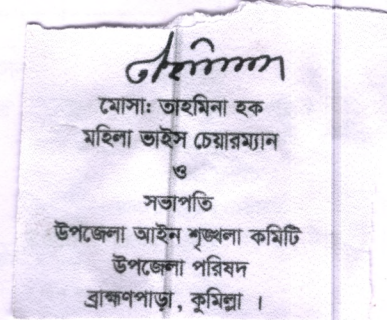 তাহমিনা
মোসা: তাহমিনা হক
মহিলা ভাইস চেয়ারম্যান
ও
সভাপতি
উপজেলা আইন শৃঙ্খলা কমিটি
উপজেলা পরিষদ
ব্রাহ্মণপাড়া, কুমিল্লা ।